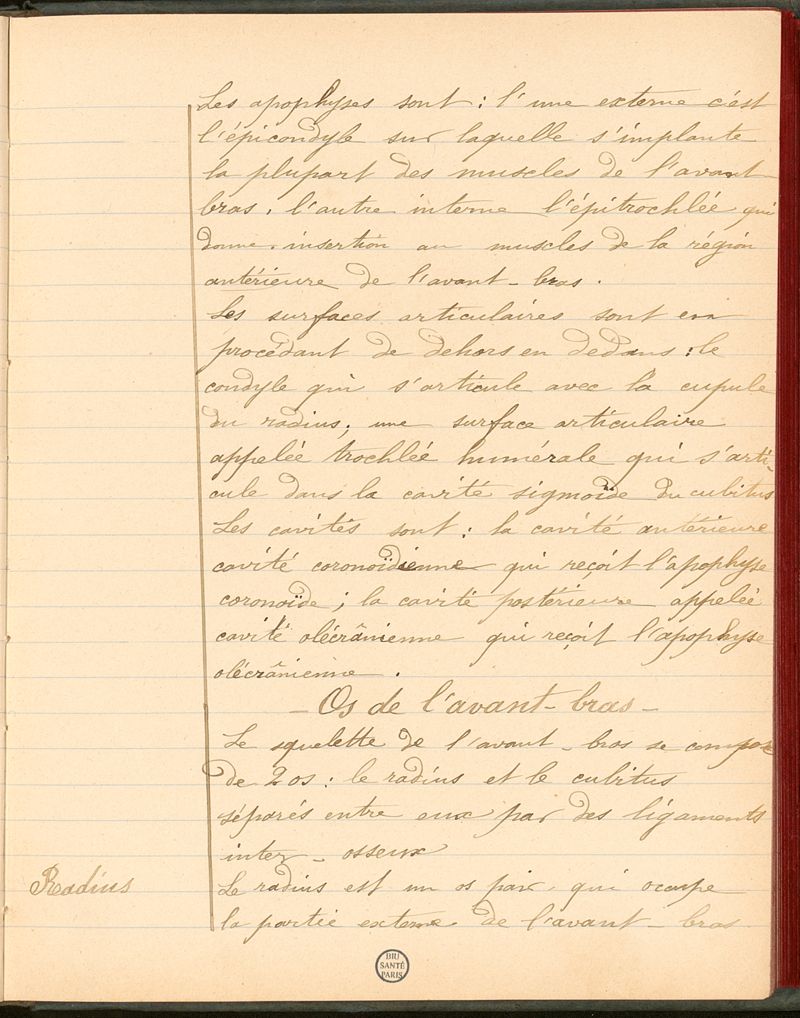 Les apophyses sont : l'une externe c'est
l'épicondyle sur laquelle s'implante
la plupart des muscles de l'avant
bras. l'autre interne l'épitrochlée qui
donne insertion au muscles de la région
antérieure de l'avant-bras.
Les surfaces articulaires sont en
procédant de dehors en dedans : le
condyle qui s'articule avec la cupule
du radius ; une surface articulaire
appelée trochlée humérale qui s'arti-
cule dans la cavité sigmoïde du cubitus
Les cavités sont : la cavité antérieure
cavité coronoïdienne qui reçoit l'apophyse
coronoïde ; la cavité postérieure appelée
cavité olécrânienne qui reçoit l'apophyse
olécrânienne.
- Os de l'avant-bras -
Le squelette de l'avant-bras se compose
de 2 os : le radius et le cubitus
séparés entre eux par des ligaments
inter-osseux
Radius
Le radius est un os pair, qui occupe
la partie externe de l'avant-bras
BIU
SANTÉ
PARIS